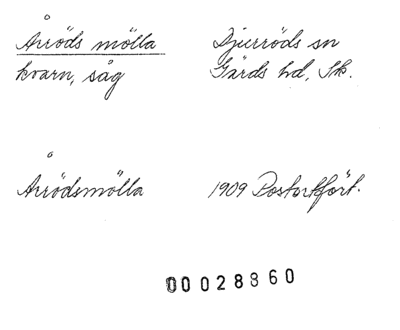 Årröds mölla
kvarn, såg
Djurröds sn
Gärds hd, Sk.
Årrödsmölla
1909 Postortfört.
00028860